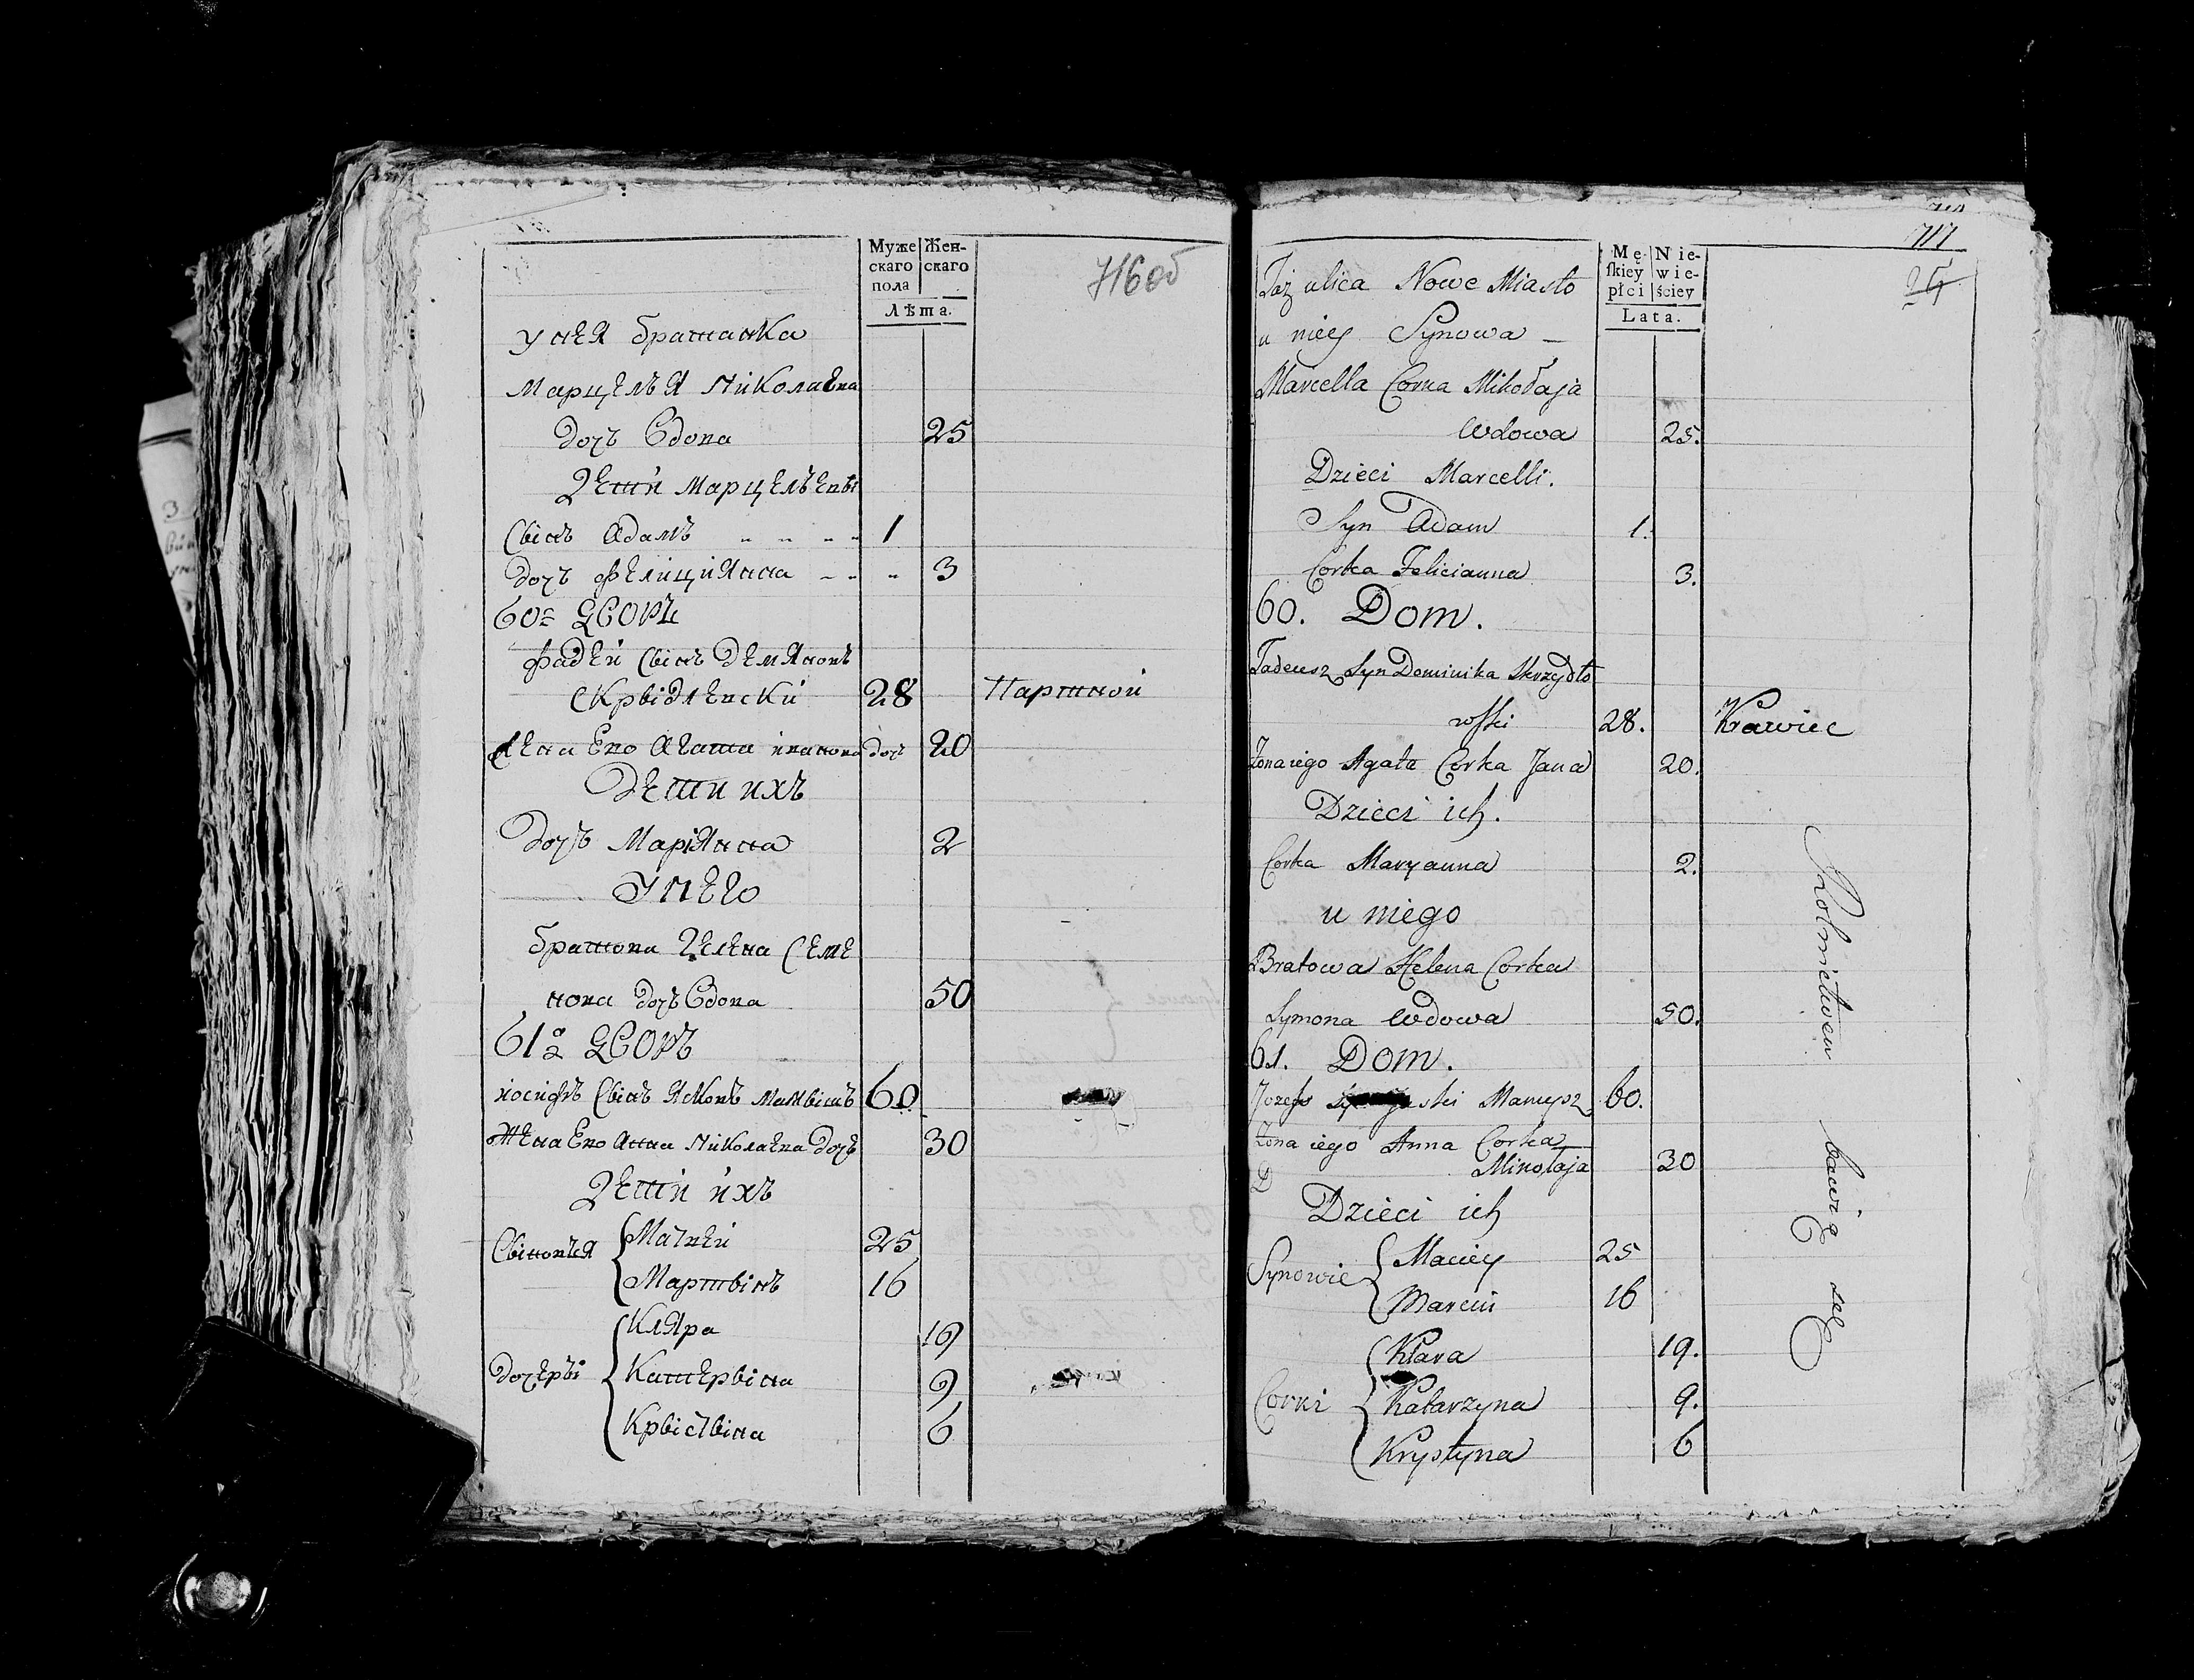 Муже
скаго
пола
Жен-
скаго
Лѣта.
716об
у нея братанка
Марцелья Николаева
дочь вдова 25
Дети Марцельевы
Сынъ Адамъ 1
дочь Фелицианна 3
60й Дворъ
Фадей Сынъ Демяновъ
Скрыдлевски 28 Партной
Жена ево Агата иванова дочь 20
Дети ихъ
Дочь Марианна 2
У него
братова Гелена Семе
нова дочь вдова 50
61й Дворъ
иосифъ Сынъ
60
Жена ево Анна Николаева дочь 30
Дети ихъ
Сыновья
Матвей 25
Мартынъ 16
Дочеры
Кляра 19
Катерына 9
Крыстына 6
717
Mę-
skiey
płci
Nie-
wie-
ściey
Lata.
Taż ulica Nowe Miasto
u niey Synowa
Marcella Corka Mikołaja
Wdowa 25.
Dzieci Marcelli.
Syn Adam 1.
Corka Felicianna 3.
60. Dom.
Tadeusz Syn Dominika Skrzydło
wski 28. Krawiec
Żona iego Agata Corka Jana 20.
Dzieci ich.
Corka Maryanna 2.
u niego
Bratowa Helena Corka
Symona Wdowa 50.
61. Dom.
Jozef ski 60.
Żona iego Anna Corka
Mikołaja 30
D
Dzieci ich
Synowie
Maciey 25
Marcin 16
Corki
Klara 19.
Katarzyna 9.
Krystyna 6
Rolnictwem bawią się